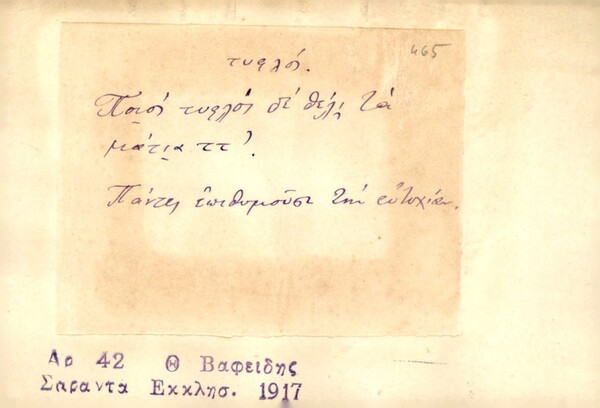 465
τυφλός.
Ποιός τυφλός δέ θέλ' τά
μάτια ττ'.
Πάντες ἐπιθυμοῦσι τήν εὐτυχίαν.
Αρ 42 Θ Βαφειδης
Σαραντα Εκκλησ. 1917